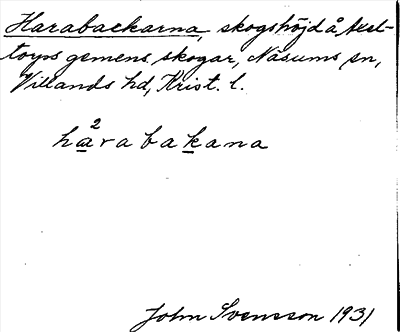 Harabackarna, skogshöjd å Axel-
torps gemens. skogar, Näsums sn,
Villands hd, Krist. l.
ha²rabakana
John Svensson 1931